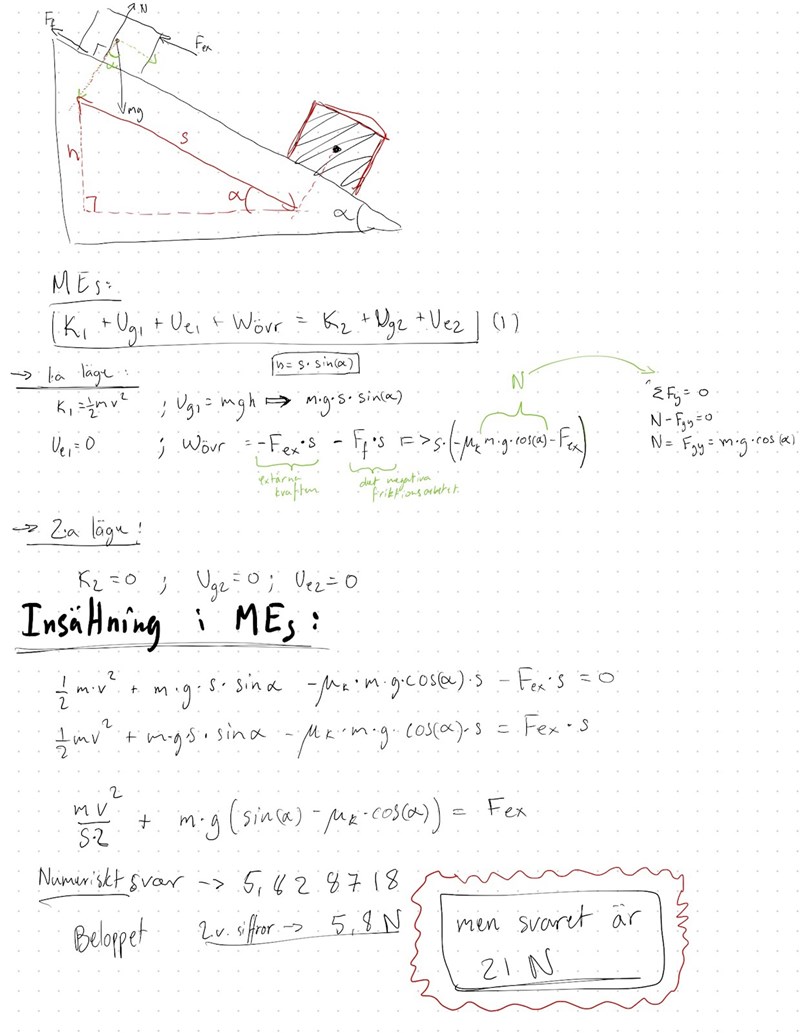 F_f N
F_ex
α
mg
s
h
α
α
MEs:
K₁ + Ug₁ + Ue₁ + Wövr = K₂ + Ug₂ + Ue₂ (1)
→ 1:a läge:
h = s · sin(α)
K₁ = ½mv² ; Ug₁ = mgh ⟹ m·g·s·sin(α)
Ue₁ = 0 ; Wövr = -F_ex·s - F_f·s => s·(-μ_k m·g·cos(α) - F_ex)
N
ΣFy = 0
N - Fgy = 0
N = Fgy = m·g·cos(α)
externa kraften
det negativa friktionsarbetet.
→ 2:a läge:
K₂ = 0 ; Ug₂ = 0 ; Ue₂ = 0
Insättning i MEs:
½ m·v² + m·g·s·sinα - μ_k·m·g·cos(α)·s - F_ex·s = 0
½ mv² + m·g·s·sinα - μ_k·m·g·cos(α)·s = F_ex·s
mv²/s·2 + m·g(sin(α) - μ_k·cos(α)) = F_ex
Numeriskt svar → 5,828718
Beloppet 2 v. siffror → 5,8 N
men svaret är
21 N